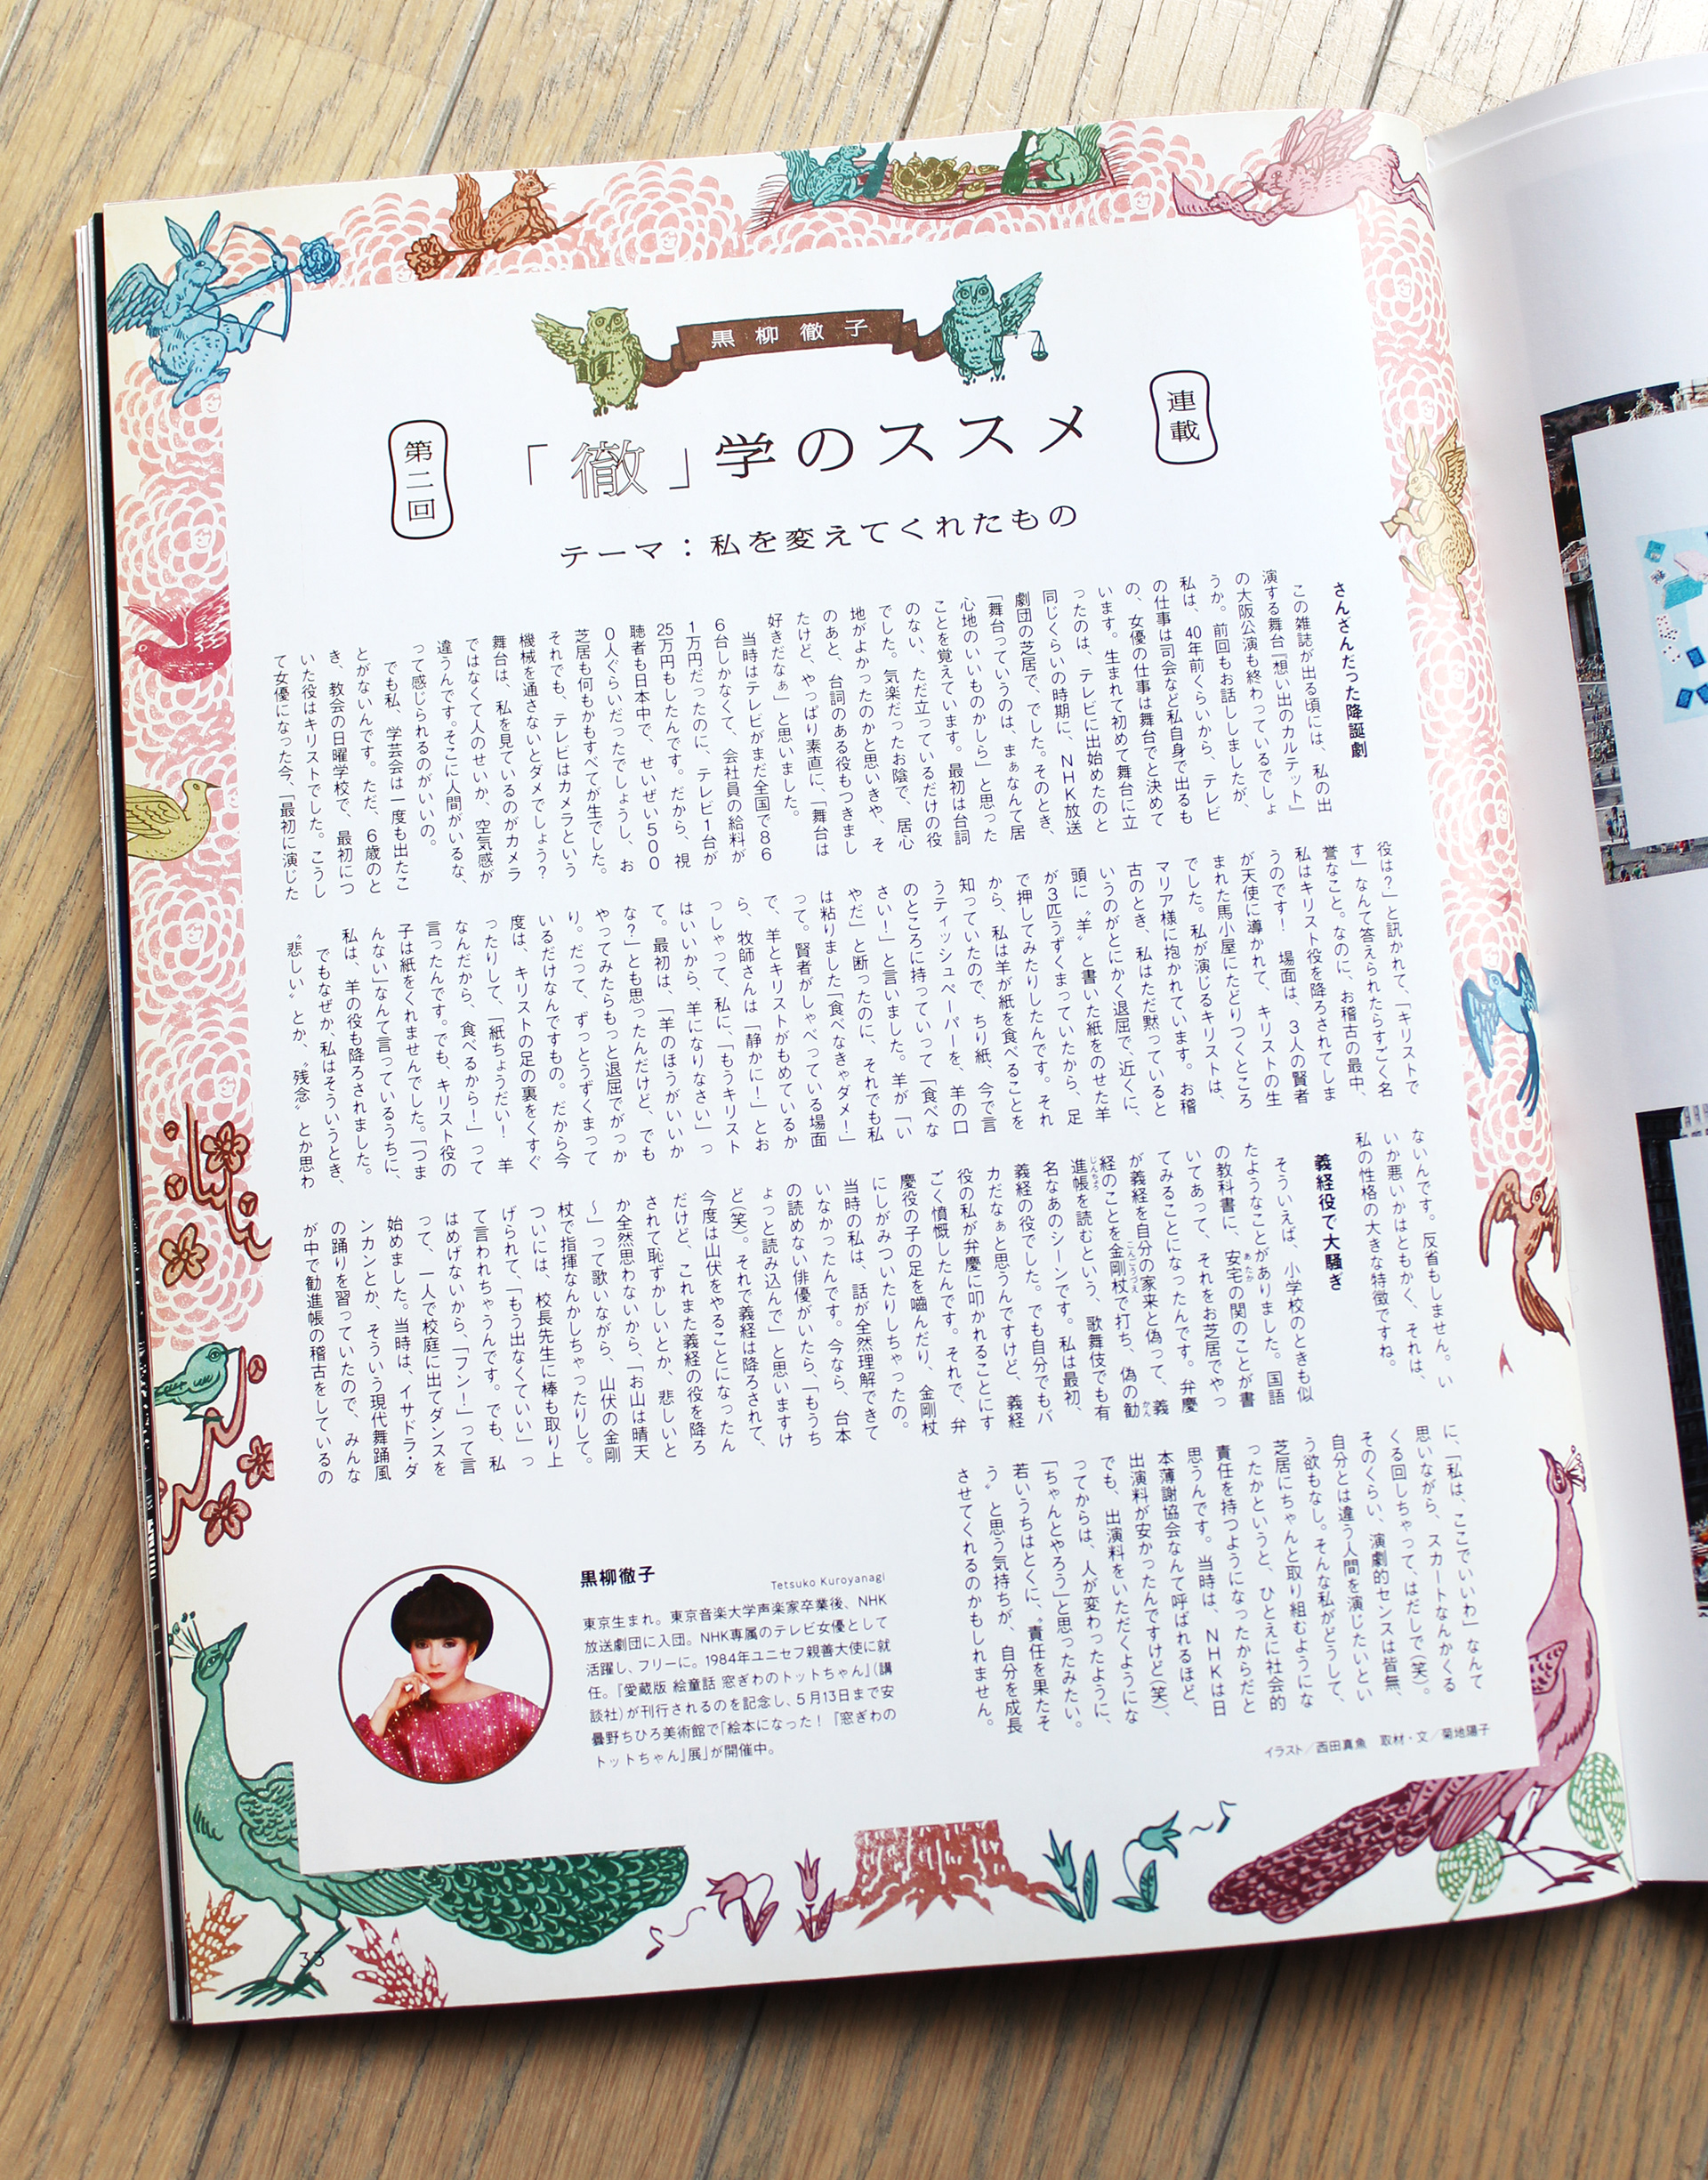 黒柳徹子
連載
「徹」学のススメ
第二回
テーマ：私を変えてくれたもの
さんざんだった降誕劇
この雑誌が出る頃には、私の出
演する舞台『想い出のカルテット』
の大阪公演も終わっているでしょ
うか。前回もお話ししましたが、
私は、40年前くらいから、テレビ
の仕事は司会など私自身で出るも
の、女優の仕事は舞台でと決めて
います。生まれて初めて舞台に立
ったのは、テレビに出始めたのと
同じくらいの時期に、NHK放送
劇団の芝居で、でした。そのとき、
「舞台っていうのは、まぁなんて居
心地のいいものかしら」と思った
ことを覚えています。最初は台詞
のない、ただ立っているだけの役
でした。気楽だったお陰で、居心
地がよかったのかと思いきや、そ
のあと、台詞のある役もつきまし
たけど、やっぱり素直に、「舞台は
好きだなぁ」と思いました。
当時はテレビがまだ全国で86
6台しかなくて、会社員の給料が
1万円だったのに、テレビ1台が
25万円もしたんです。だから、視
聴者も日本中で、せいぜい500
0人ぐらいだったでしょうし、お
芝居も何もかもすべてが生でした。
それでも、テレビはカメラという
機械を通さないとダメでしょう？
舞台は、私を見ているのがカメラ
ではなくて人のせいか、空気感が
違うんです。そこに人間がいるな、
って感じられるのがいいの。
でも私、学芸会は一度も出たこ
とがないんです。ただ、6歳のと
き、教会の日曜学校で、最初につ
いた役はキリストでした。こうし
て女優になった今、「最初に演じた
役は？」と訊かれて、「キリストで
す」なんて答えられたらすごく名
誉なこと。なのに、お稽古の最中、
私はキリスト役を降ろされてしま
うのです！　場面は、3人の賢者
が天使に導かれて、キリストの生
まれた馬小屋にたどりつくところ
でした。私が演じるキリストは、
マリア様に抱かれています。お稽
古のとき、私はただ黙っていると
いうのがとにかく退屈で、近くに、
頭に〝羊〟と書いた紙をのせた羊
が3匹うずくまっていたから、足
で押してみたりしたんです。それ
から、私は羊が紙を食べることを
知っていたので、ちり紙、今で言
うティッシュペーパーを、羊の口
のところに持っていって「食べな
さい！」と言いました。羊が「い
やだ」と断ったのに、それでも私
は粘りました「食べなきゃダメ！」
って。賢者がしゃべっている場面
で、羊とキリストがもめているか
ら、牧師さんは「静かに！」とお
っしゃって、私に、「もうキリスト
はいいから、羊になりなさい」っ
て。最初は、「羊のほうがいいか
な？」とも思ったんだけど、でも
やってみたらもっと退屈でがっか
り。だって、ずっとうずくまって
いるだけなんですもの。だから今
度は、キリストの足の裏をくすぐ
ったりして、「紙ちょうだい！　羊
なんだから、食べるから！」って
言ったんです。でも、キリスト役の
子は紙をくれませんでした。「つま
んない」なんて言っているうちに、
私は、羊の役も降ろされました。
でもなぜか、私はそういうとき、
〝悲しい〟とか、〝残念〟とか思わ
ないんです。反省もしません。い
いか悪いかはともかく、それは、
私の性格の大きな特徴ですね。
義経役で大騒ぎ
そういえば、小学校のときも似
たようなことがありました。国語
の教科書に、安宅の関のことが書
いてあって、それをお芝居でやっ
てみることになったんです。弁慶
が義経を自分の家来と偽って、義
経のことを金剛杖で打ち、偽の勧
進帳を読むという、歌舞伎でも有
名なあのシーンです。私は最初、
義経の役でした。でも自分でもバ
カだなぁと思うんですけど、義経
役の私が弁慶に叩かれることにす
ごく憤慨したんです。それで、弁
慶役の子の足を嚙んだり、金剛杖
にしがみついたりしちゃったの。
当時の私は、話が全然理解できて
いなかったんです。今なら、台本
の読めない俳優がいたら、「もうち
ょっと読み込んで」と思いますけ
ど（笑）。それで義経は降ろされて、
今度は山伏をやることになったん
だけど、これまた義経の役を降ろ
されて恥ずかしいとか、悲しいと
か全然思わないから、「お山は晴天
〜」って歌いながら、山伏の金剛
杖で指揮なんかしちゃったりして。
ついには、校長先生に棒も取り上
げられて、「もう出なくていい」っ
て言われちゃうんです。でも、私
はめげないから、「フン！」って言
って、一人で校庭に出てダンスを
始めました。当時は、イサドラ・ダ
ンカンとか、そういう現代舞踊風
の踊りを習っていたので、みんな
が中で勧進帳の稽古をしているの
に、「私は、ここでいいわ」なんて
思いながら、スカートなんかくる
くる回しちゃって、はだしで（笑）。
そのくらい、演劇的センスは皆無、
自分とは違う人間を演じたいとい
う欲もなし。そんな私がどうして、
芝居にちゃんと取り組むようにな
ったかというと、ひとえに社会的
責任を持つようになったからだと
思うんです。当時は、NHKは日
本薄謝協会なんて呼ばれるほど、
出演料が安かったんですけど（笑）、
でも、出演料をいただくようにな
ってからは、人が変わったように、
「ちゃんとやろう」と思ったみたい。
若いうちはとくに、〝責任を果たそ
う〟と思う気持ちが、自分を成長
させてくれるのかもしれません。
イラスト／西田真魚　取材・文／菊地陽子
黒柳徹子
Tetsuko Kuroyanagi
東京生まれ。東京音楽大学声楽家卒業後、NHK
放送劇団に入団。NHK専属のテレビ女優として
活躍し、フリーに。1984年ユニセフ親善大使に就
任。『愛蔵版 絵童話 窓ぎわのトットちゃん』（講
談社）が刊行されるのを記念し、5月13日まで安
曇野ちひろ美術館で「絵本になった！『窓ぎわの
トットちゃん』展」が開催中。
33